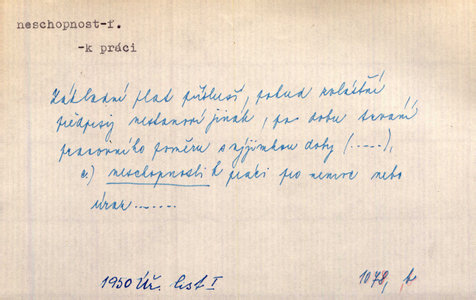 neschopnost-f.
-k práci
Základní plat přísluší, pokud zvláštní
předpisy nestanoví jinak, po dobu trvání
pracovního poměru s výjimkou doby (.....),
c.) neschopnosti k práci pro nemoc nebo
úraz......
1950 Úř. list I
1078, b